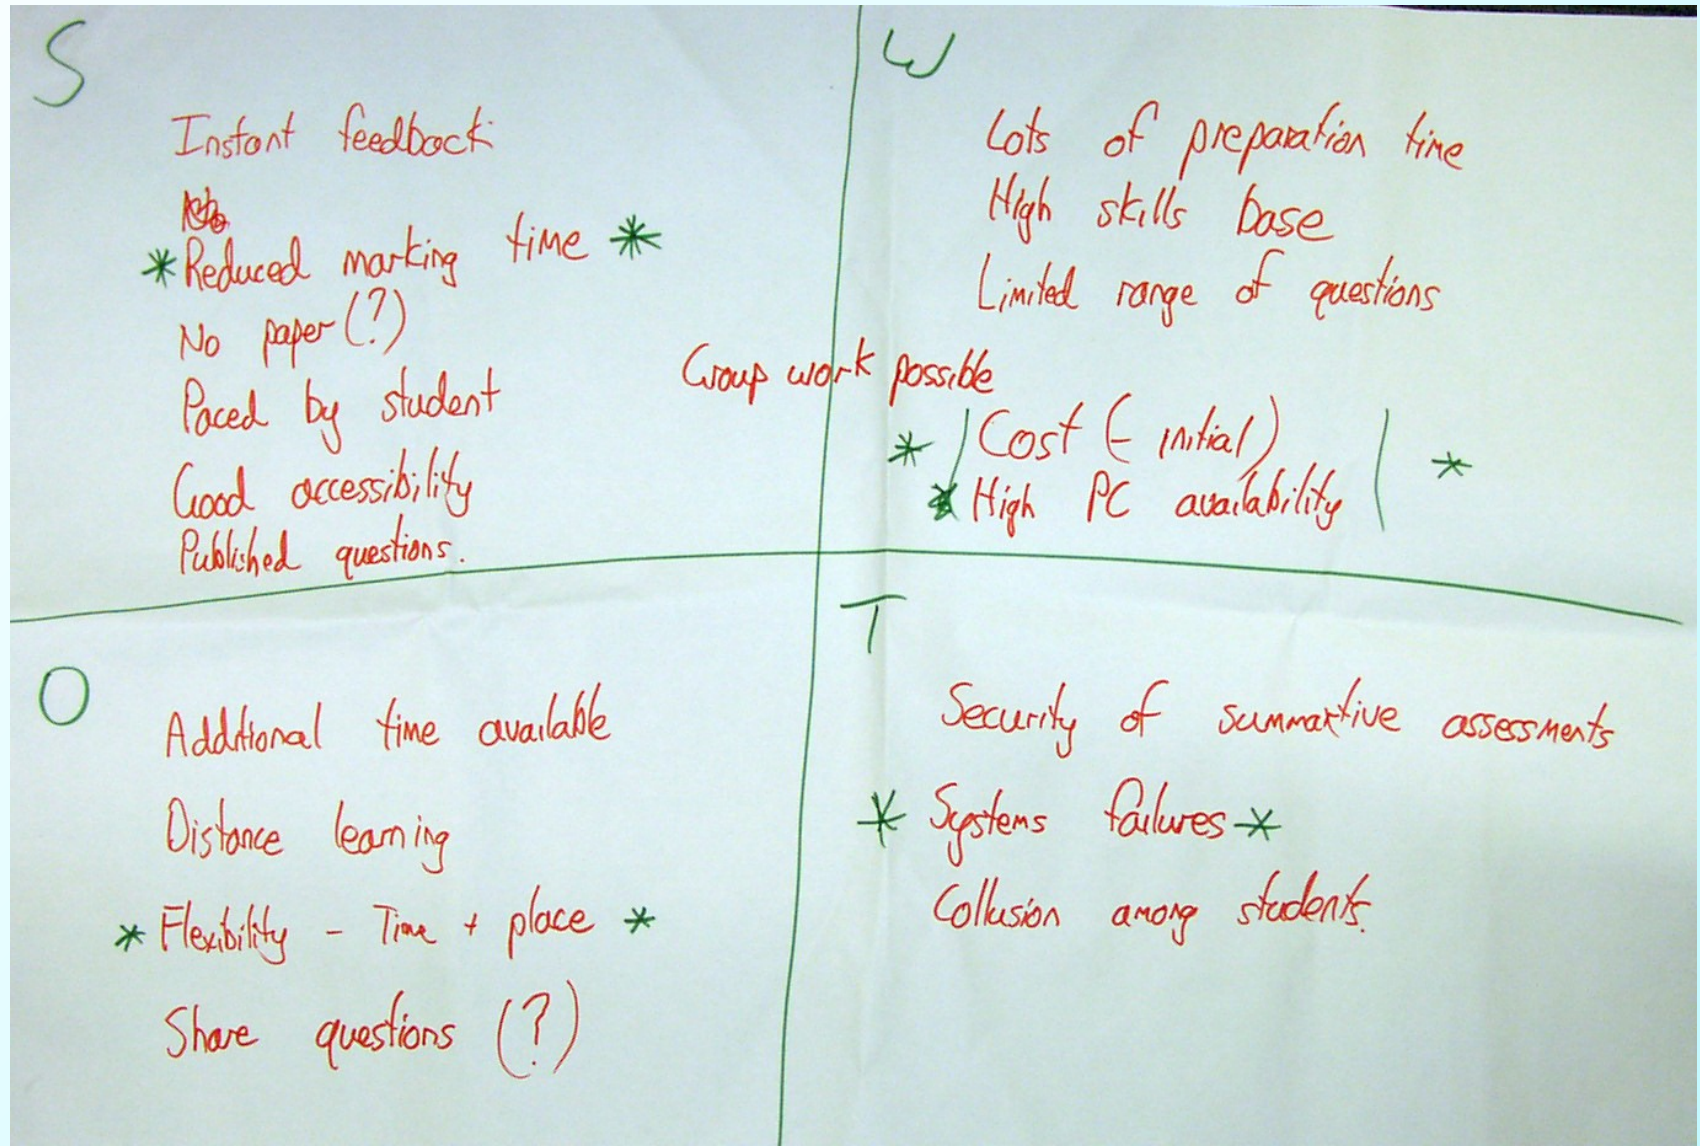 S
Instant feedback
* Reduced marking time *
No paper (?)
Paced by student
Good accessibility
Published questions.
W
Lots of preparation time
High skills base
Limited range of questions
Group work possible
* Cost (- initial) *
* High PC availability
O
Additional time available
Distance learning
* Flexibility - Time + place *
Share questions (?)
T
Security of summative assessments
* Systems failures *
Collusion among students.